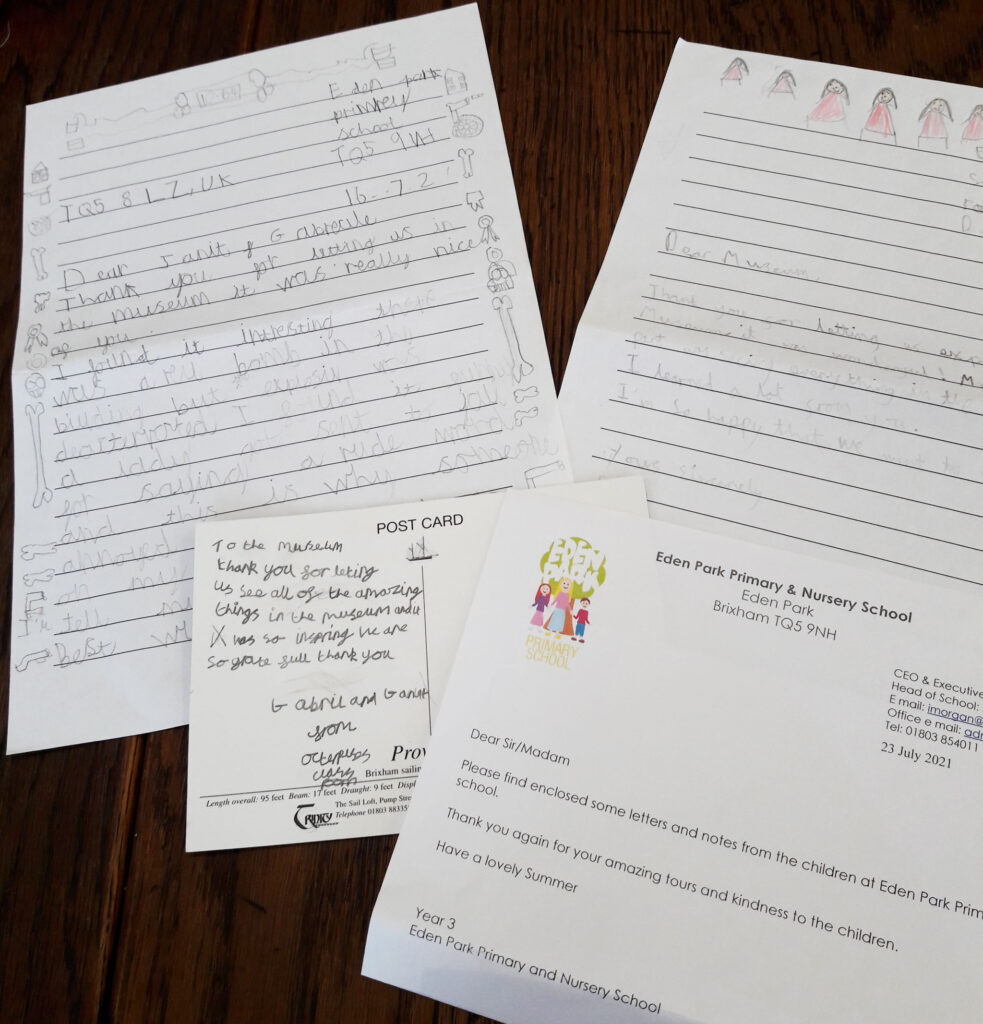 Eden park
primrey
school
TQ5 9NH
TQ5 8LZ, UK
16.7.2
Dear Janit & Gabreale
Thank you for letting us in
the museum it was really nice
of you.
I found it intresting there
was a ww bomb in the
biulding but explosiv was
I found it
a lady got sent to jail
for saying a rude word
and this is why someone
on my
I'll tell
Best wi
Dear Museum,
Thank you for letting us exp
Museum it was wonderful! M
part was seeing everything in the
I learned a lot from you.
I'm so happy that we went to
Yowe sincerely
POST CARD
To the museum
thank you for leting
us see all of the amazing
things in the museum and it
X was so inspring we are
so grate full thank you
Gabril and Ganit
from
octerpuses
class
Prov
Brixham sailin
Length overall: 95 feet Beam: 17 feet Draught: 9 feet Displ
TRINITY
The Sail Loft, Pump Stre
Telephone 01803 88335
EDEN
PARK
PRIMARY
SCHOOL
Eden Park Primary & Nursery School
Eden Park
Brixham TQ5 9NH
CEO & Executive
Head of School:
E mail: jmorgan@
Office e mail: adm
Tel: 01803 854011
23 July 2021
Dear Sir/Madam
Please find enclosed some letters and notes from the children at Eden Park Prim
school.
Thank you again for your amazing tours and kindness to the children.
Have a lovely Summer
Year 3
Eden Park Primary and Nursery School